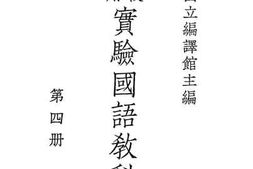 立編譯館主編
實驗國語教科
第四册